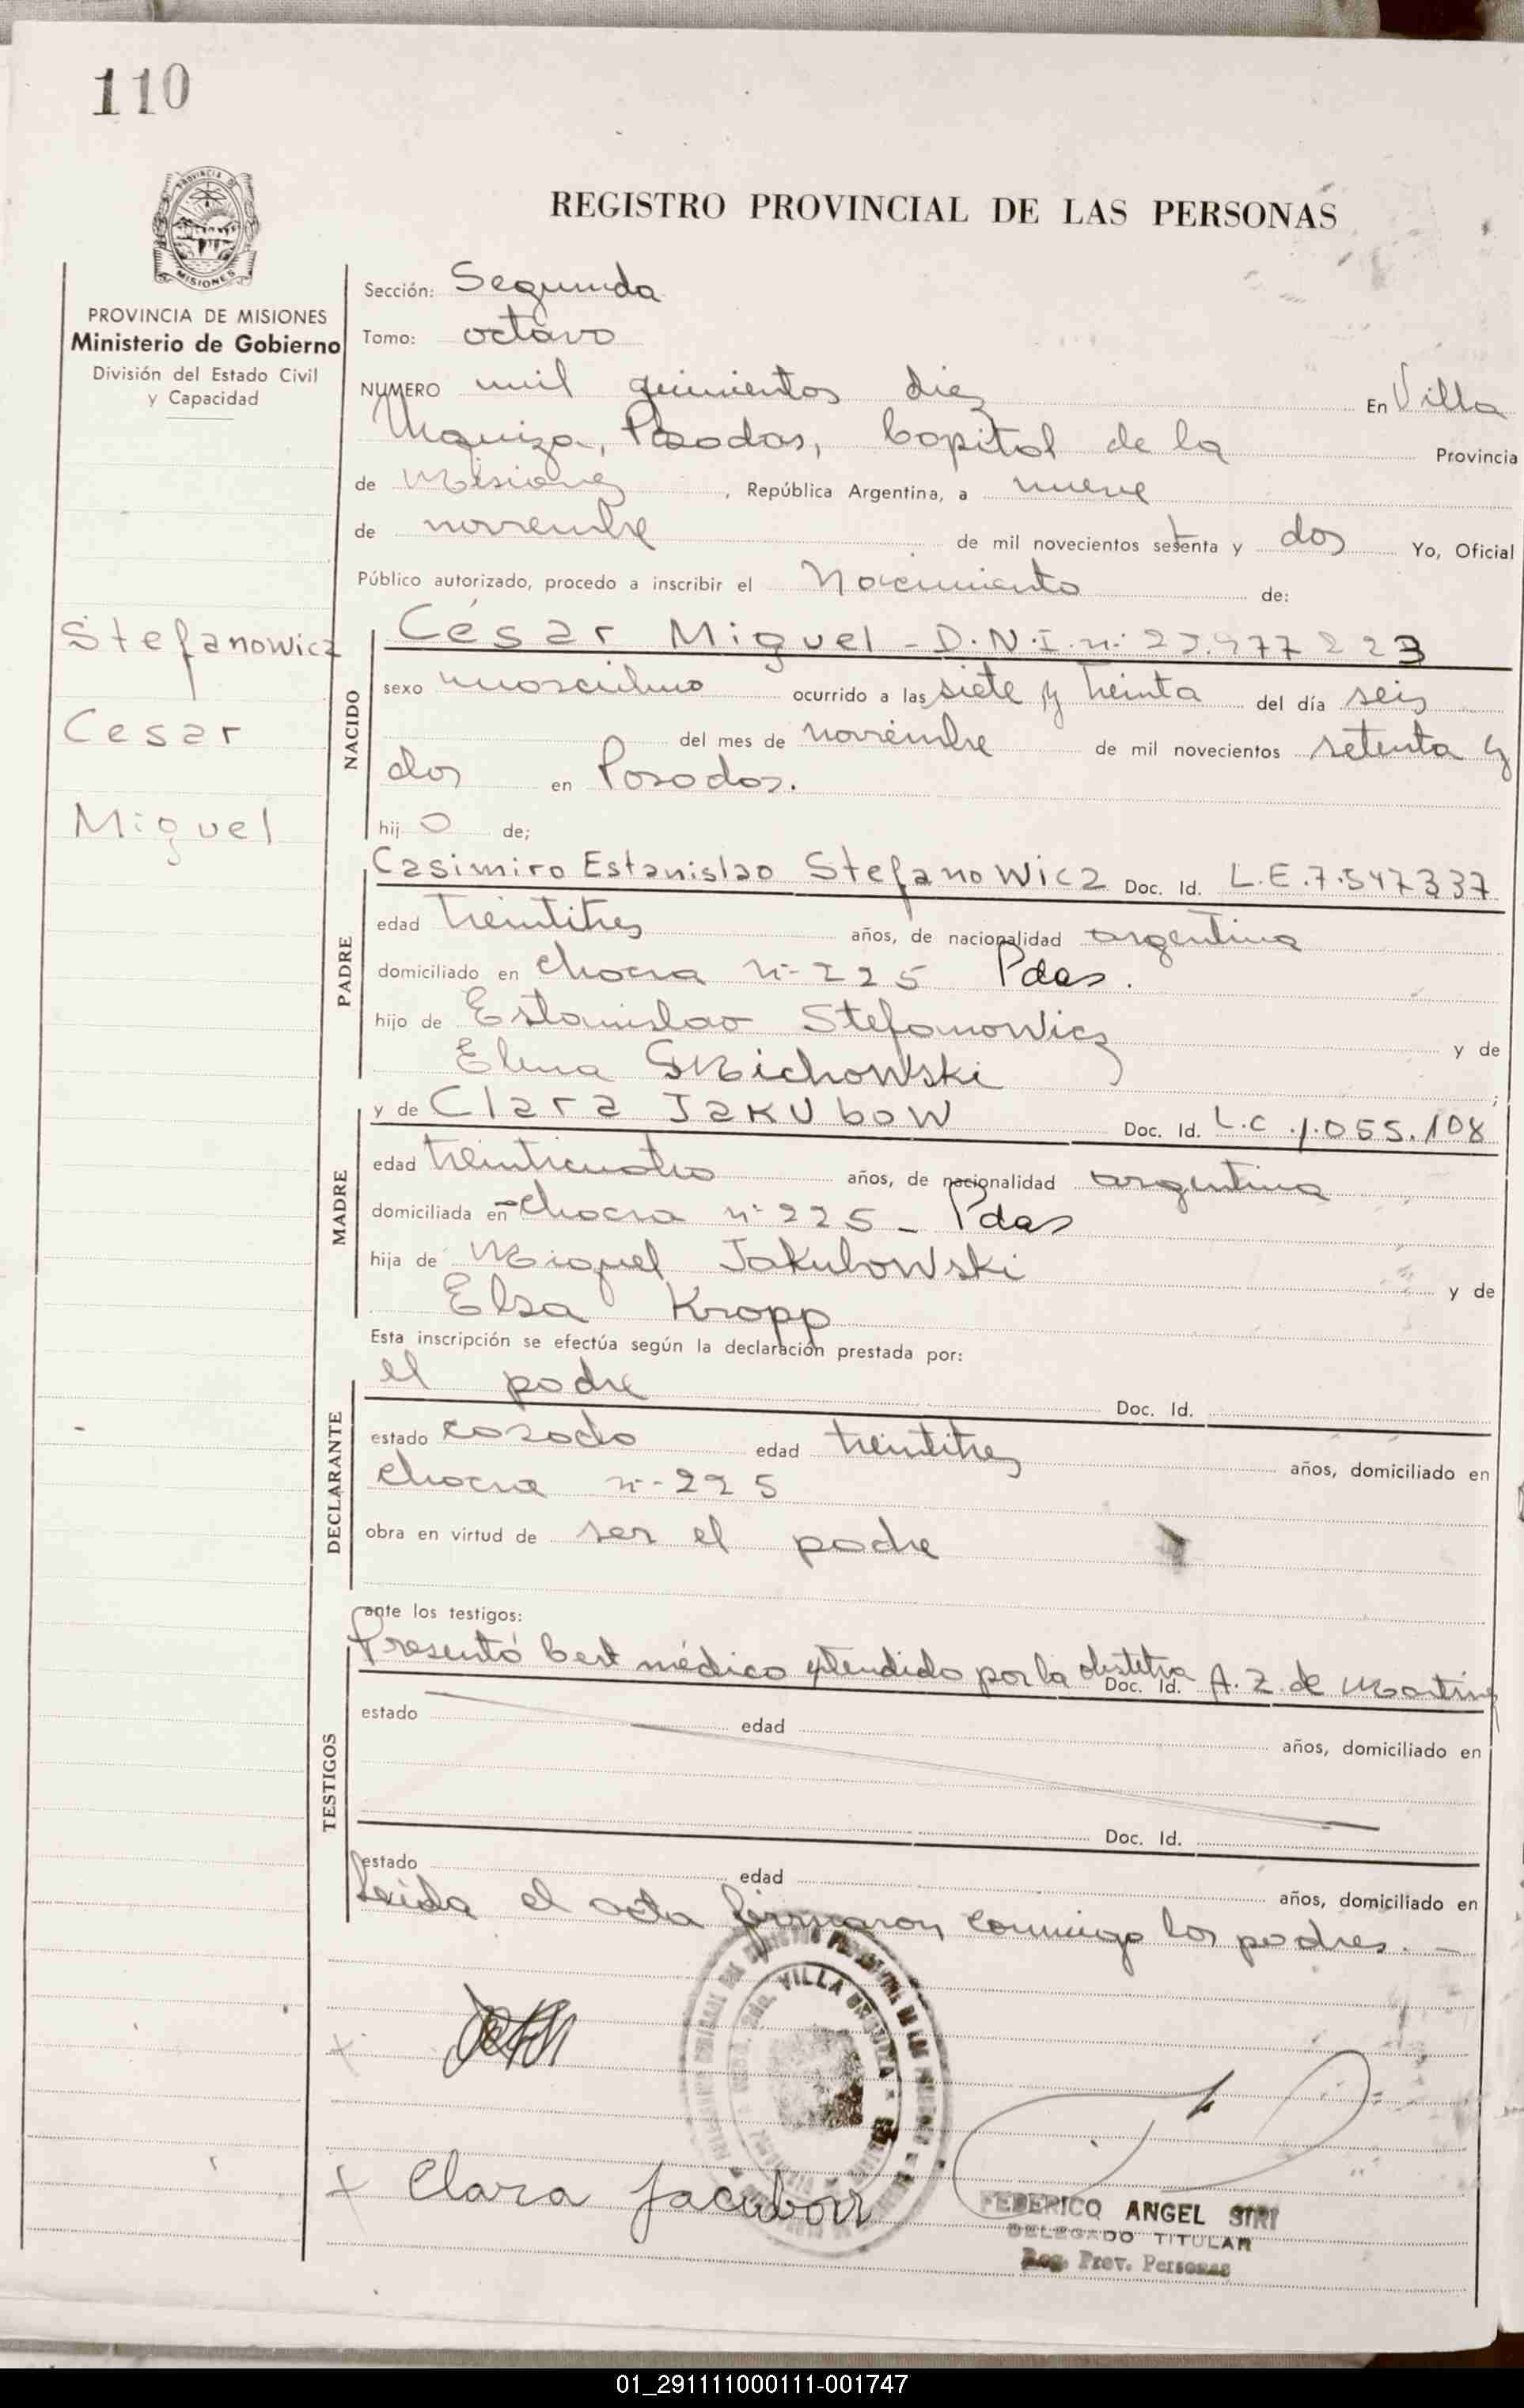 110
PROVINCIA DE MISIONES
Ministerio de Gobierno
División del Estado Civil
y Capacidad
Stefanowicz
Cesar
Miguel
REGISTRO PROVINCIAL DE LAS PERSONAS
Sección: Segunda
Tomo: octavo
NUMERO mil quinientos diez En Villa
Urquiza, Posadas, Capital de la Provincia
de Misiones, República Argentina, a nueve
de noviembre de mil novecientos setenta y dos Yo, Oficial
Público autorizado, procedo a inscribir el Nacimiento de:
NACIDO
César Miguel - D.N.I. n:
sexo masculino ocurrido a las siete y treinta del día seis
del mes de noviembre de mil novecientos setenta y
dos en Posadas.
hijo de;
PADRE
Casimiro Estanislao Stefanowicz Doc. Id. L.E. 7.547337
edad treintitres años, de nacionalidad argentina
domiciliado en chacra n- 225 Pdas.
hijo de Estanislao Stefanowicz y de
Elena ;
MADRE
y de Clara Jakubow Doc. Id. L.C. 1.055.108
edad treinticuatro años, de nacionalidad argentina
domiciliada en chacra n- 225 - Pdas
hija de Miguel Jakubowski y de
Elsa Kropp
Esta inscripción se efectúa según la declaración prestada por:
DECLARANTE
el padre Doc. Id.
estado casado edad treintitres años, domiciliado en
chacra n- 225
obra en virtud de ser el padre
ante los testigos:
TESTIGOS
Presentó Cert médico extendido por la obstetra Doc. Id. A. Z. de Martinez
estado edad años, domiciliado en
Doc. Id.
estado edad años, domiciliado en
Leida el acta firmaron conmigo los padres. -
VILLA URQUIZA
Clara Jacubow
FEDERICO ANGEL SIRI
DELEGADO TITULAR
Reg. Prov. Personas
01_291111000111-001747